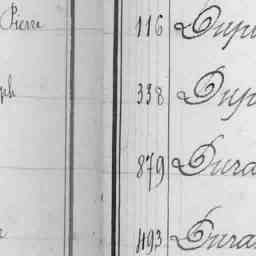 Pierre 116 Dup
ph 338 Dup
879 Dura
493 Dura